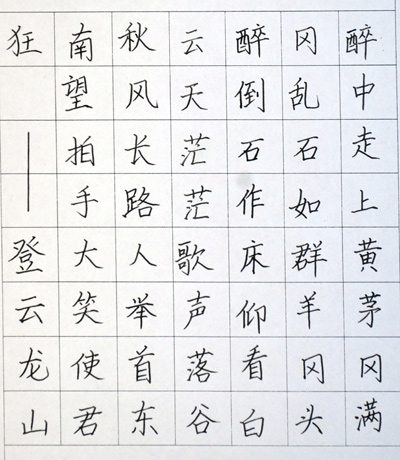 醉中走上黄茅冈满
冈乱石如群羊冈头
醉倒石作床仰看白
云天茫茫歌声落谷
秋风长路人举首东
南望拍手大笑使君
狂——登云龙山